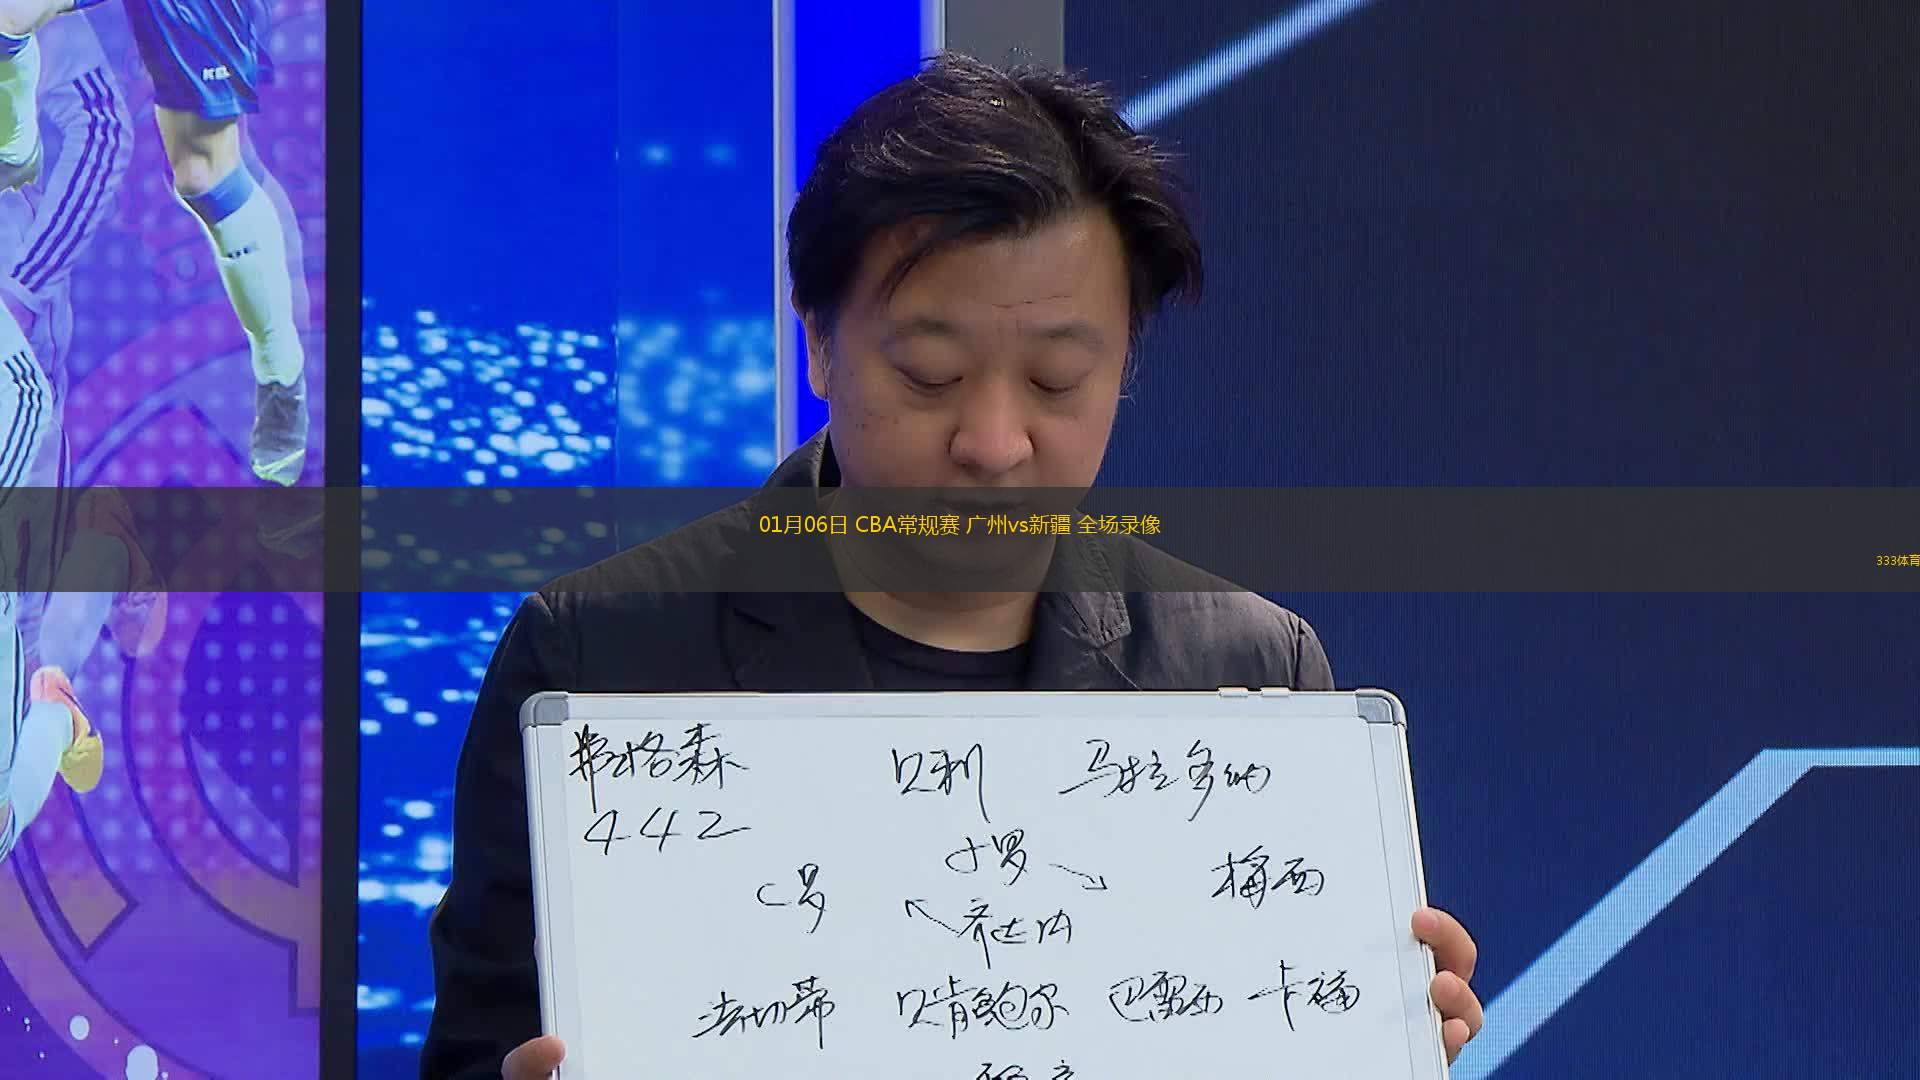 01月06日 CBA常规赛 广州vs新疆 全场录像
333体育
弗格森 贝利 马拉多纳
442
小罗
C罗 梅西
齐达内
法切蒂 贝肯鲍尔 巴雷西 卡福